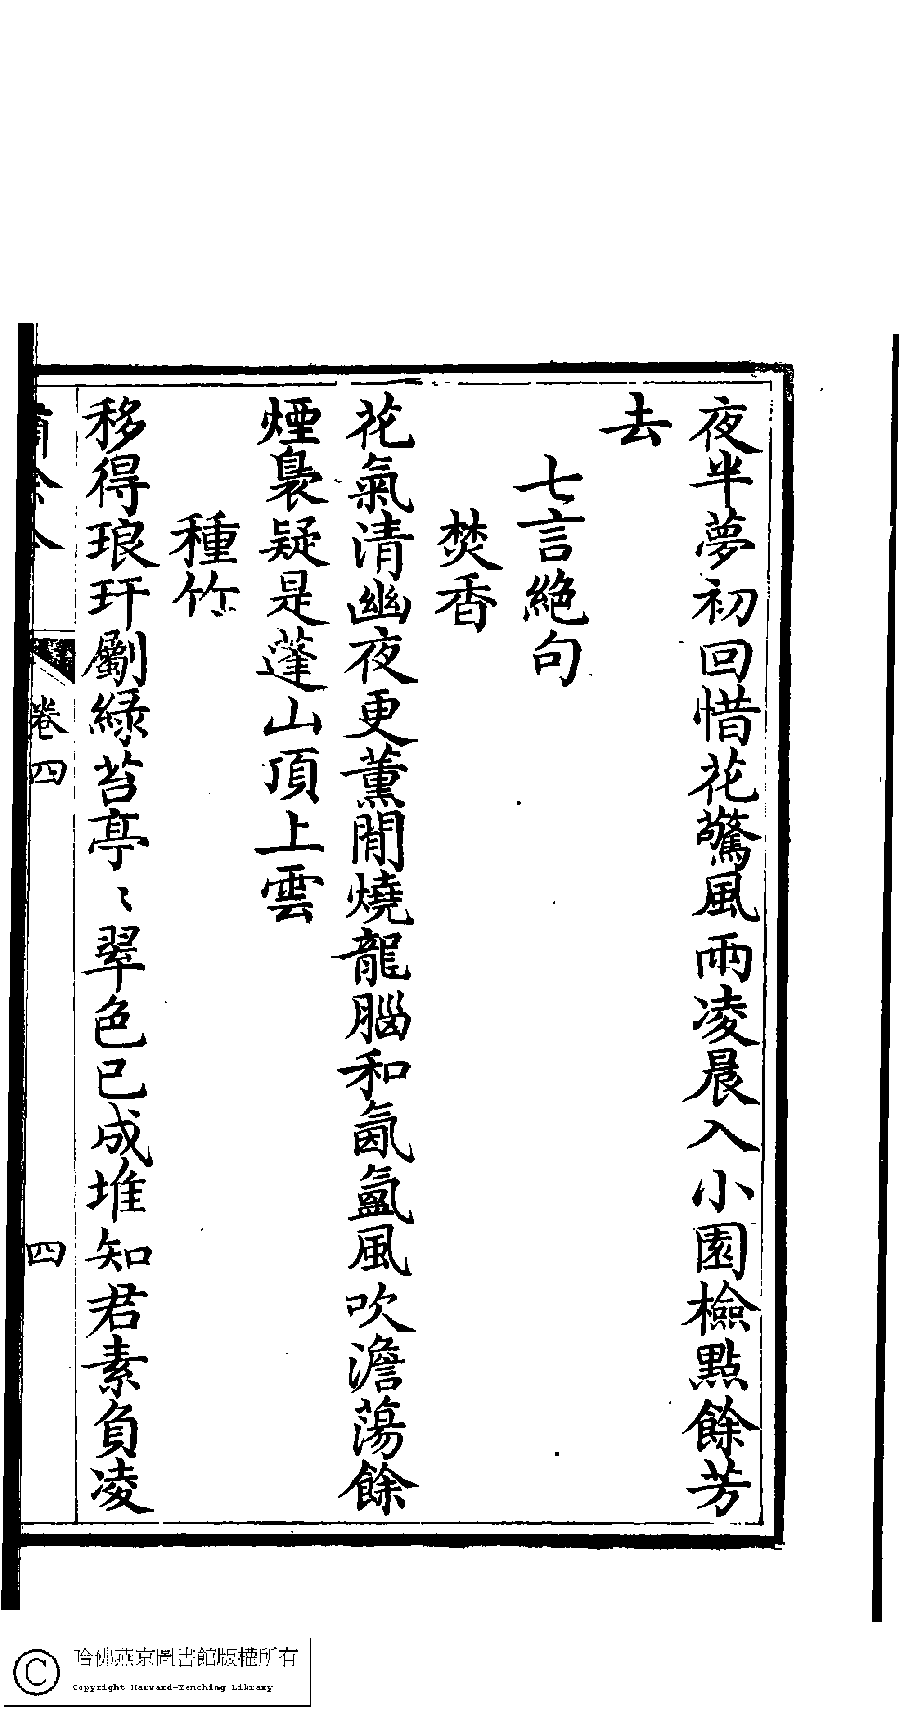 夜半夢初回惜花驚風雨凌晨入小園檢點餘芳
去
七言絕句
焚香
花氣清幽夜更薰閒燒龍腦和氤氳風吹澹蕩餘
煙裊疑是蓬山頂上雲
種竹
移得琅玕劚綠苔亭〻翠色已成堆知君素負凌
卷四
四
哈佛燕京圖書館版權所有
Copyright Harvard-Yenching Library